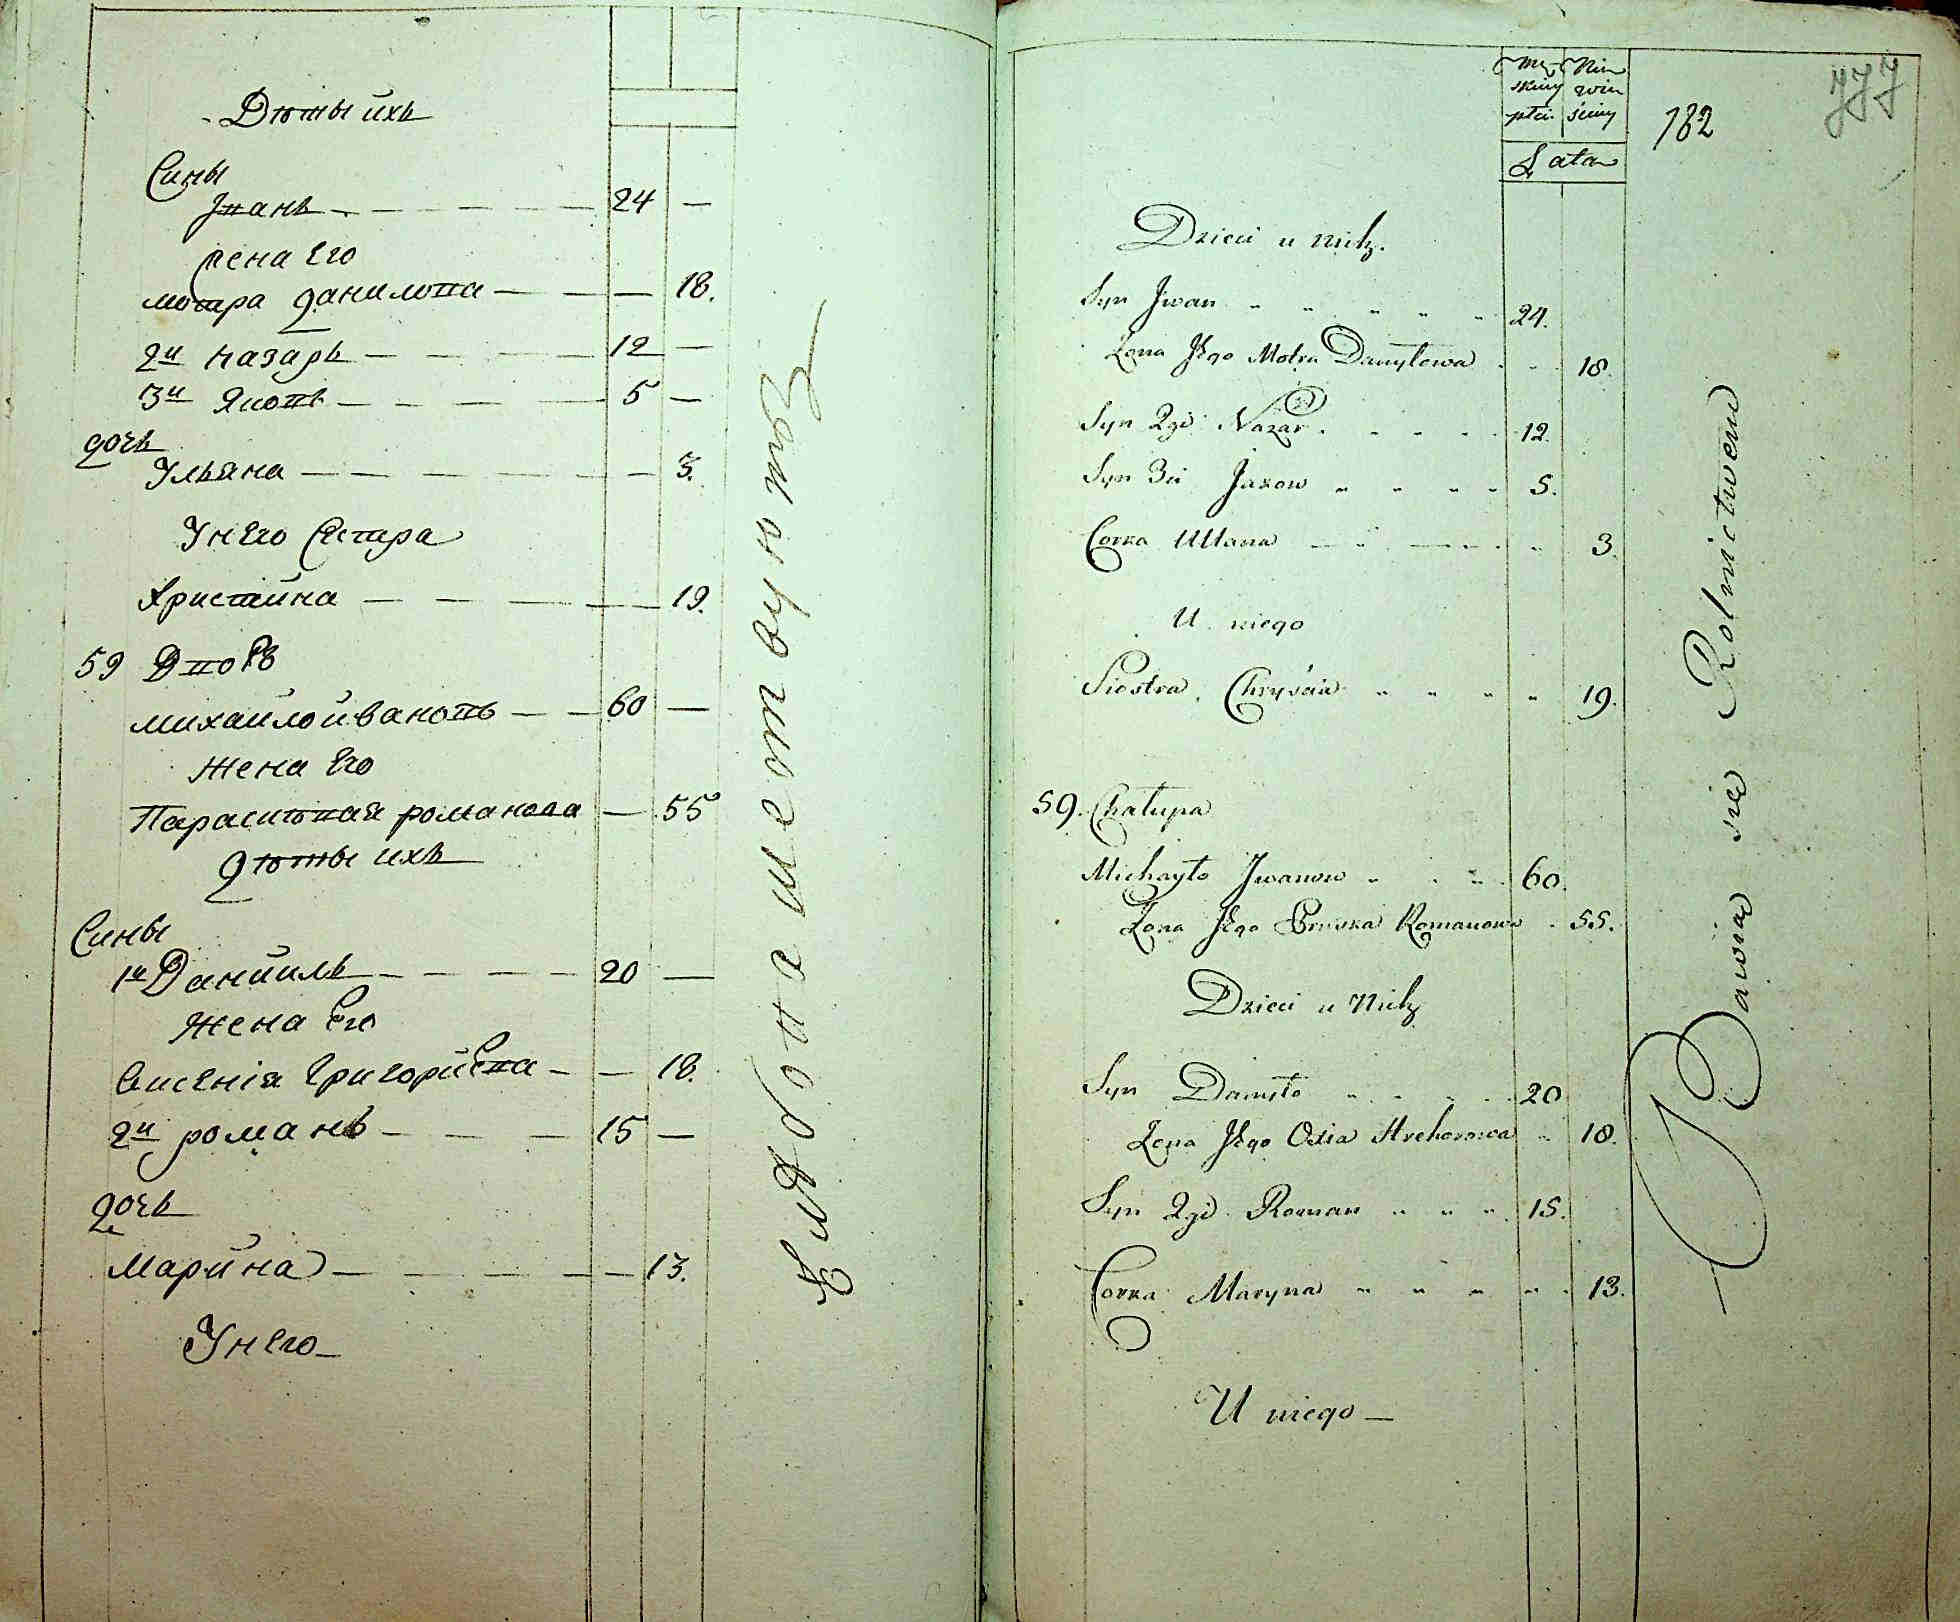 Дѣти ихъ
Сины
Іванъ 24 —
жена Его
мотра данилова — 18.
2й назарь 12 —
3й Яковъ 5 —
дочь
Ульяна — 3.
У него Сестра
Христина — 19.
59 Дворъ
михаило ивановъ 60 —
жена Его
Парасковая романова — 55
дѣти ихъ
Сины
1й Данииль 20 —
жена Его
Григориева — 18.
2й романъ 15 —
дочь
Марина — 13.
У него —
męskiey płci
Niewieściey
182
777
Lata
Dzieci u nich.
Syn Jwan 24.
Zona Jego Motra Danyłowa 18.
Syn 2gi Nazar 12.
Syn 3ci Jakow 5.
Corka Ullana 3.
U niego
Siostra Chryścia 19.
59. Chałupa
Michayło Jwanow 60.
Zona Jego Romanowa 55.
Dzieci u Nich
Syn Danyło 20
Zona Jego Oxia Hrehorowa 18.
Syn 2gi Roman 15.
Corka Maryna 13.
U niego —
Bawia się Rolnictwem